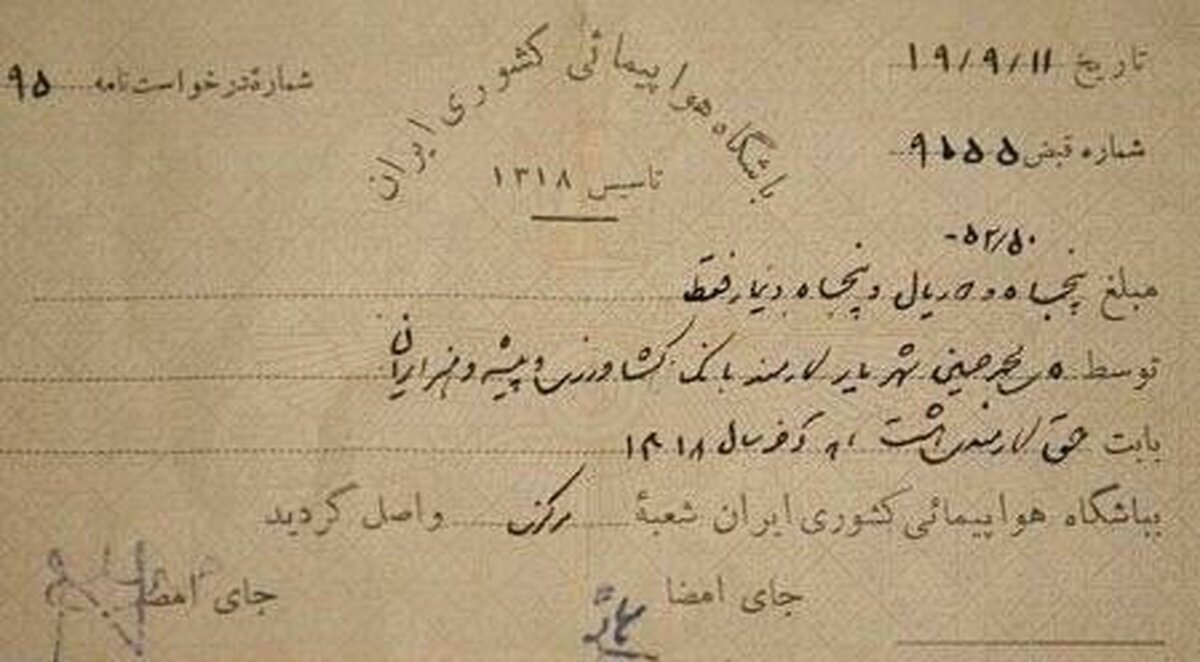 تاریخ ۱۹/۹/۱۱
باشگاه هواپیمائی کشوری ایران
شمارهٔ درخواست نامه ۹۵
تاسیس ۱۳۱۸
شماره قبض ۹۱۵۵
۵۲/۵۰-
مبلغ پنجاه و دو ریال و پنجاه دینار فقط
توسط شهریار کارمند بانک کشاورزی و پیشه و هنر ایران
بابت حق کارمندی هشت ماه آخر سال ۱۳۱۸
بباشگاه هواپیمائی کشوری ایران شعبهٔ مرکزی واصل گردید
جای امضا
جای امضا